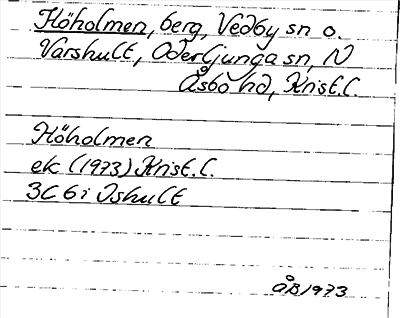 Höholmen, berg, Vedby sn o.
Varshult, Oderljunga sn, N
Åsbo hd, Krist.l.
Höholmen
ek (1973) Krist.l.
3C 6i Ishult
ÅB 1973